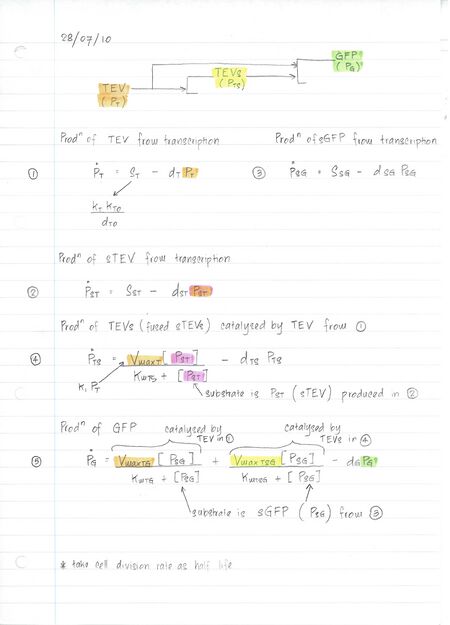 28/07/10
GFP
(PG)
TEVs
(PTS)
TEV
(PT)
Prodⁿ of TEV from transcription
Prodⁿ of sGFP from transcription
① ṖT = ST - dT PT
kT kTO
dTO
③ ṖSG = SSG - dSG PSG
Prodⁿ of sTEV from transcription
② ṖST = SST - dST PST
Prodⁿ of TEVs (fused sTEVs) catalysed by TEV from ①
④ ṖTS = VmaxT [PST] - dTS PTS
KmTS + [PST]
K₁ PT
substrate is PST (sTEV) produced in ②
Prodⁿ of GFP
catalysed by TEV in ①
catalysed by TEVs in ④
⑤ ṖG = VmaxTG [PSG] + VmaxTSG [PSG] - dG PG
KmTG + [PSG]
+ [PSG]
substrate is sGFP (PSG) from ③
* take cell division rate as half life